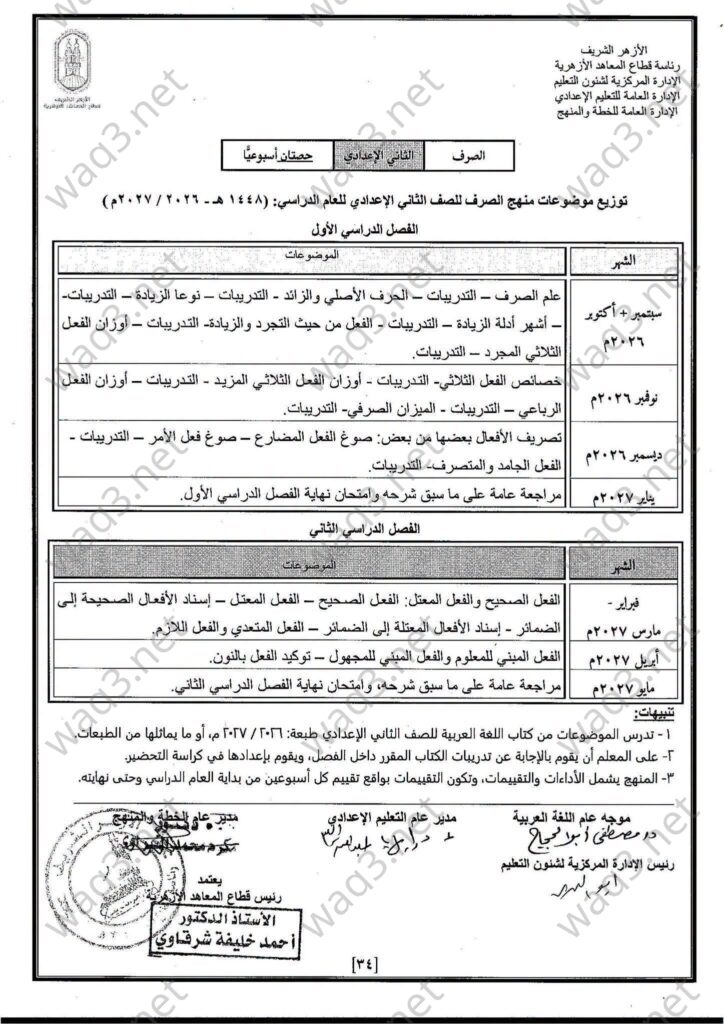 الأزهر الشريف
رئاسة قطاع المعاهد الأزهرية
الإدارة المركزية لشئون التعليم
الإدارة العامة للتعليم الإعدادي
الإدارة العامة للخطة والمنهج
الأزهر الشريف
قطاع المعاهد الأزهرية
الصرف
الثاني الإعدادي
حصتان أسبوعيًّا
توزيع موضوعات منهج الصرف للصف الثاني الإعدادي للعام الدراسي: (١٤٤٨ هـ - ٢٠٢٦ / ٢٠٢٧م)
الفصل الدراسي الأول
الشهر
الموضوعات
سبتمبر + أكتوبر
٢٠٢٦م
علم الصرف – التدريبات – الحرف الأصلي والزائد - التدريبات – نوعا الزيادة – التدريبات-
– أشهر أدلة الزيادة – التدريبات - الفعل من حيث التجرد والزيادة- التدريبات – أوزان الفعل
الثلاثي المجرد – التدريبات.
نوفمبر ٢٠٢٦م
خصائص الفعل الثلاثي- التدريبات - أوزان الفعل الثلاثي المزيد - التدريبات – أوزان الفعل
الرباعي – التدريبات - الميزان الصرفي- التدريبات.
ديسمبر ٢٠٢٦م
تصريف الأفعال بعضها من بعض: صوغ الفعل المضارع – صوغ فعل الأمر – التدريبات -
الفعل الجامد والمتصرف- التدريبات.
يناير ٢٠٢٧م
مراجعة عامة على ما سبق شرحه وامتحان نهاية الفصل الدراسي الأول.
الفصل الدراسي الثاني
الشهر
الموضوعات
فبراير -
مارس ٢٠٢٧م
الفعل الصحيح والفعل المعتل: الفعل الصحيح – الفعل المعتل – إسناد الأفعال الصحيحة إلى
الضمائر - إسناد الأفعال المعتلة إلى الضمائر – الفعل المتعدي والفعل اللازم.
أبريل ٢٠٢٧م
الفعل المبني للمعلوم والفعل المبني للمجهول – توكيد الفعل بالنون.
مايو ٢٠٢٧م
مراجعة عامة على ما سبق شرحه، وامتحان نهاية الفصل الدراسي الثاني.
تنبيهات:
١- تدرس الموضوعات من كتاب اللغة العربية للصف الثاني الإعدادي طبعة: ٢٠٢٦ / ٢٠٢٧ م، أو ما يماثلها من الطبعات.
٢- على المعلم أن يقوم بالإجابة عن تدريبات الكتاب المقرر داخل الفصل، ويقوم بإعدادها في كراسة التحضير.
٣- المنهج يشمل الأداءات والتقييمات، وتكون التقييمات بواقع تقييم كل أسبوعين من بداية العام الدراسي وحتى نهايته.
موجه عام اللغة العربية
مدير عام التعليم الإعدادي
مدير عام الخطة والمنهج
د. مصطفى أبو الحجاج
رئيس الإدارة المركزية لشئون التعليم
يعتمد
رئيس قطاع المعاهد الأزهرية
الأستاذ الدكتور
أحمد خليفة شرقاوي
[٣٤]
waq3.net